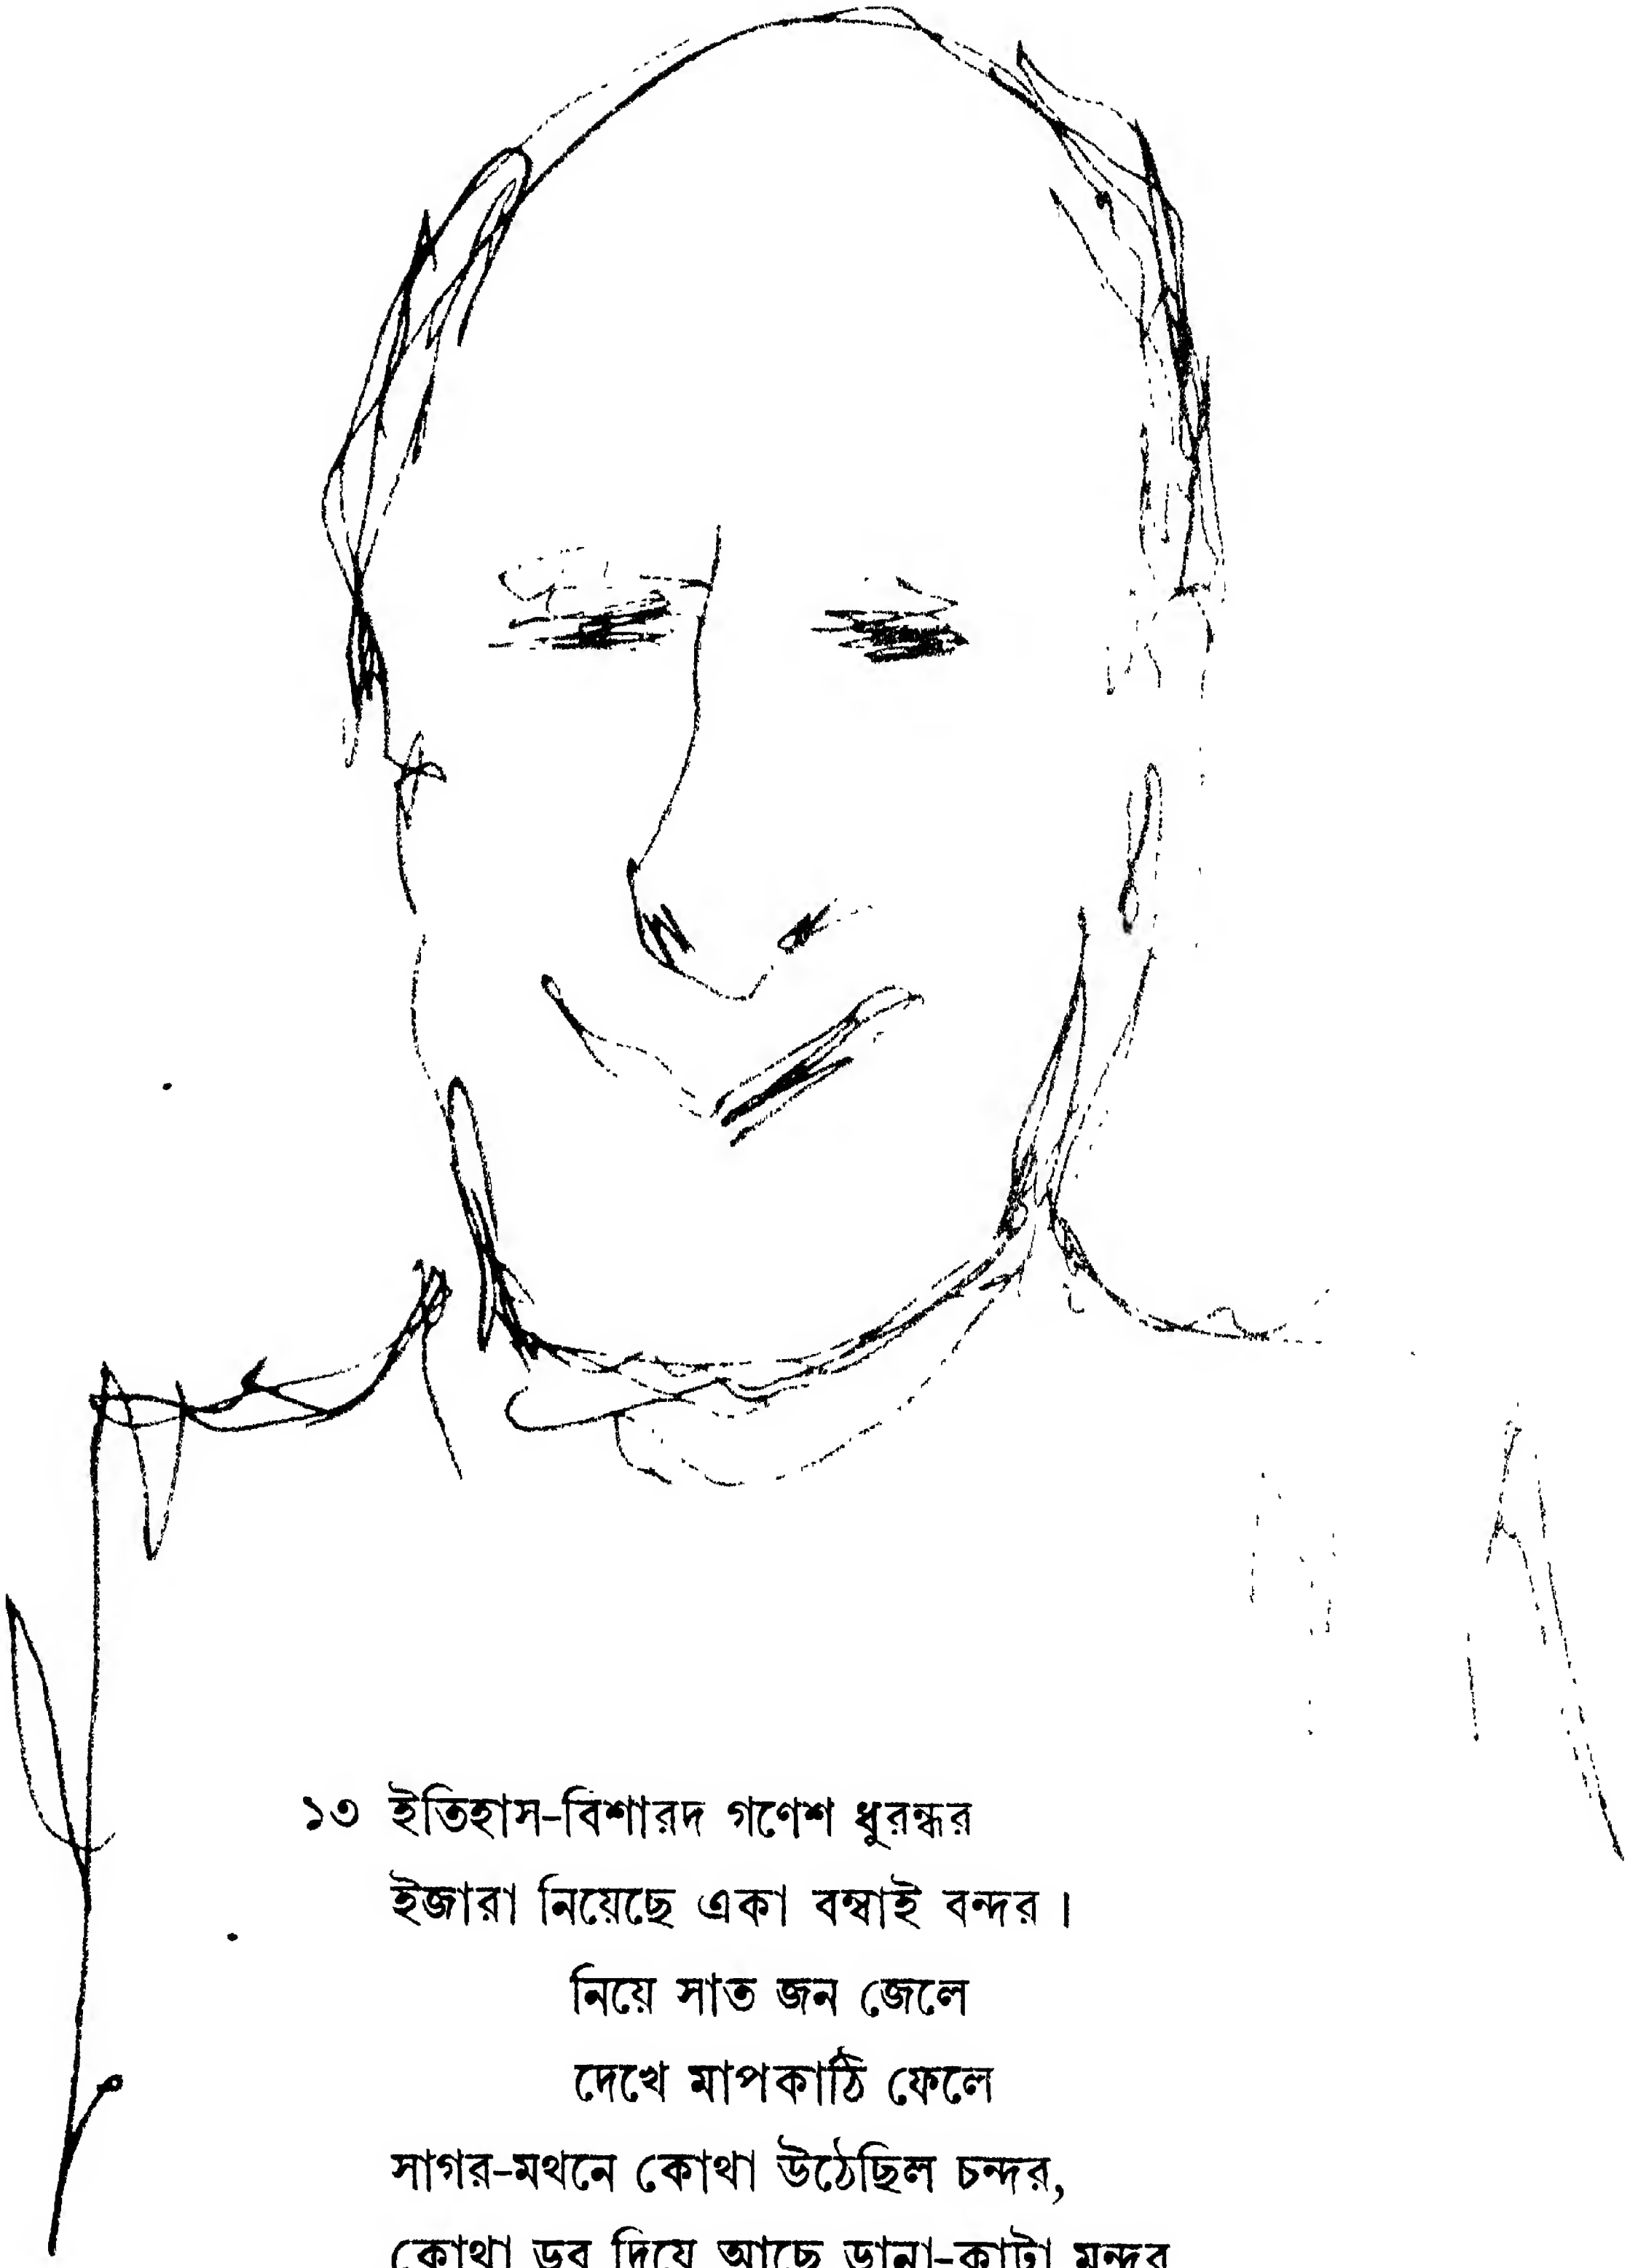 ১৩ ইতিহাস-বিশারদ গণেশ ধুরন্ধর
ইজারা নিয়েছে একা বম্বাই বন্দর।
নিয়ে সাত জন জেলে
দেখে মাপকাঠি ফেলে
সাগর-মথনে কোথা উঠেছিল চন্দর,
কোথা ডুব দিয়ে আছে ডানা-কাটা মন্দর